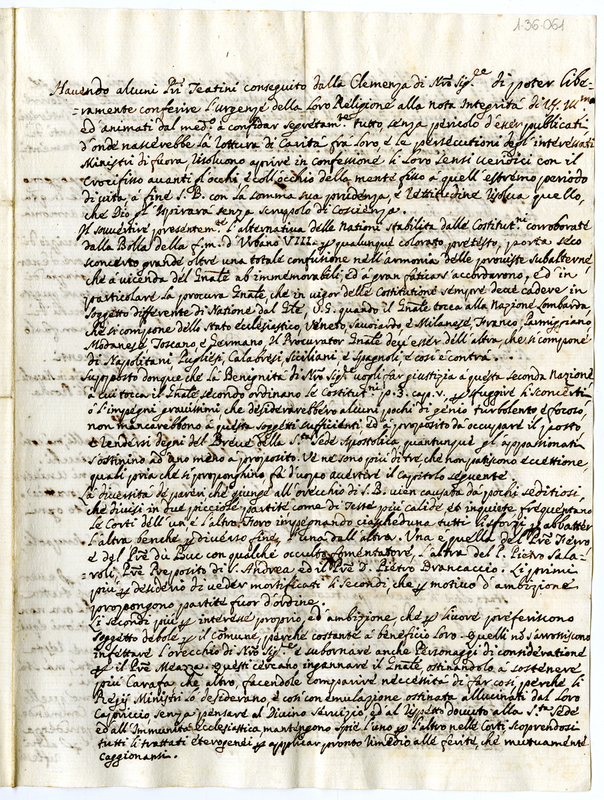 1-36-061
Havendo alcuni Pri Teatini conseguito dalla Clemenza di Nro Sigre di poter libe-
ramente conferire l'urgenze della loro Religione alla nota Integrità di
ed animati dal medo à confidar segretamte tutto, senza pericolo d'esser publicati
d'onde nascerebbe la rottura di Carità fra loro, e le persecutioni degl'interessati
Ministri di fuora, risoluono aprire in confessione li loro sensi veridici con il
Crocifisso avanti gl'occhi, e coll'occhio della mente fisso à quell'estremo periodo
di vita, à fine S. B. con la somma sua prudenza, e rettitudine risolva quello,
che Dio gl'ispirarà senza scrupolo di Coscienza.
Il sovvertire presentem. l'alternativa delle Nationi stabilita dalle Costitutni corroborate
dalla Bolla della f. m. d'Urbano VIII. per qualunque colorato pretesto, porta seco
sconcerto grande oltre una totale confusione nell'armonia delle proviste subalterne
che à vicenda del Gnale ab immemorabili, ed à gran fatica s'accordarono, ed in
particolare la procura Gnale, che in vigor delle Costitutioni sempre deve cadere in
soggetto differente di Natione dal Gle, V. G. quando il Gnale tocca alla Nazione Lombarda
che si compone dello Stato Ecclesiastico, Veneto, Savoiardo, e Milanese, Franco, Parmiggiano
Modanese, Toscano, e Germano, Il Procurator Gnale dev'esser dell'altra, che si compone
di Napolitani, Pugliesi, Calabresi, Siciliani e Spagnoli, e così è contra.
Supposto donque che la Benignità di Nro Sigre voglj far giustizia à questa seconda Nazione
à cui tocca il Gnale secondo ordinano le Costitutni p. 3. cap. v. per sfuggire li sconcerti
ò l'impegni gravissimi, che desiderarebbero alcuni pochi di genio turbolento, e focoso,
non mancarebbono à questa soggetti sufficienti, ed à proposito da occupare il posto
e rendersi degni del Breve della Sta Sede Apostolica quantunque gl'appassionati
s'ostinino ad ano meno à proposito. Ve ne sono più di trè che non patiscono eccettione
quali pria che si proponghino fa d'uopo avertere il Capitolo seguente.
La diversità de pareri che giunge all'orecchio di S. B. vien causata da pochi seditiosi,
che divisi in due picciole partite come di Teste più calide, et inquiete frequentano
le Corti dell'un, e l'altro Foro impegnando ciascheduna tutti li sforzi per abbatter
l'altra benche per diverso fine, l'una dall'altra. Una e quella del Pre Fierro
e del Pre di Bucc con qualche occulto fomentatore, l'altra del P. Pietro Sala-
roli, Pre Preposito di S. Andrea ed il Pre D. Pietro Brancaccio. Li primi
più per desiderio di veder mortificati li secondi, che per motivo d'ambizione
propongono partiti fuor d'ordine.
Li secondi più per interesse proprio, ed ambizione, che per livore preferiscono
soggetto debole per il Comune, perche costante à beneficio loro. Quelli nò s'arrossiscono
infettare l'orecchio di Nro Sigre e subornare anche Personaggi di consideratione
per il Pre Meazza. Questi cercano ingannare il Gnale ostinandolo à sostenere
più Carafa che altro, facendole comparire neccessità di far così, perche li
Regij Ministri lo desiderano, e così con emulazione ostinata allucinati dal loro
Capriccio senza pensare al Divino servizio, ed al rispetto dovuto alla Sta Sede
ed all'Immunità Ecclesiastica mantengono spie l'uno per l'altro nelle Corti scoprendosi
tutti li trattati eterogenei per applicar pronto rimedio alle ferite che mutuamente
caggionansi.